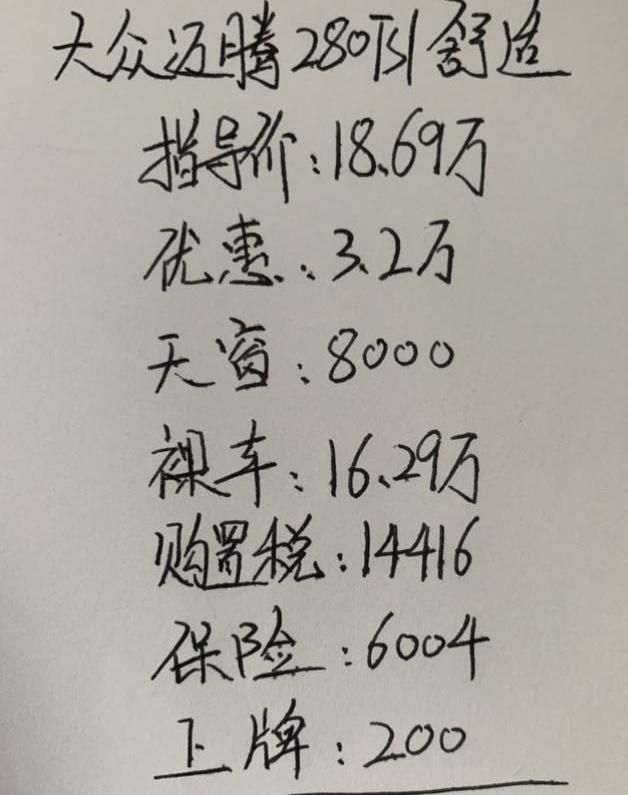 大众迈腾280TSI舒适
指导价:18.69万
优惠:3.2万
天窗:8000
裸车:16.29万
购置税:14416
保险:6004
上牌:200